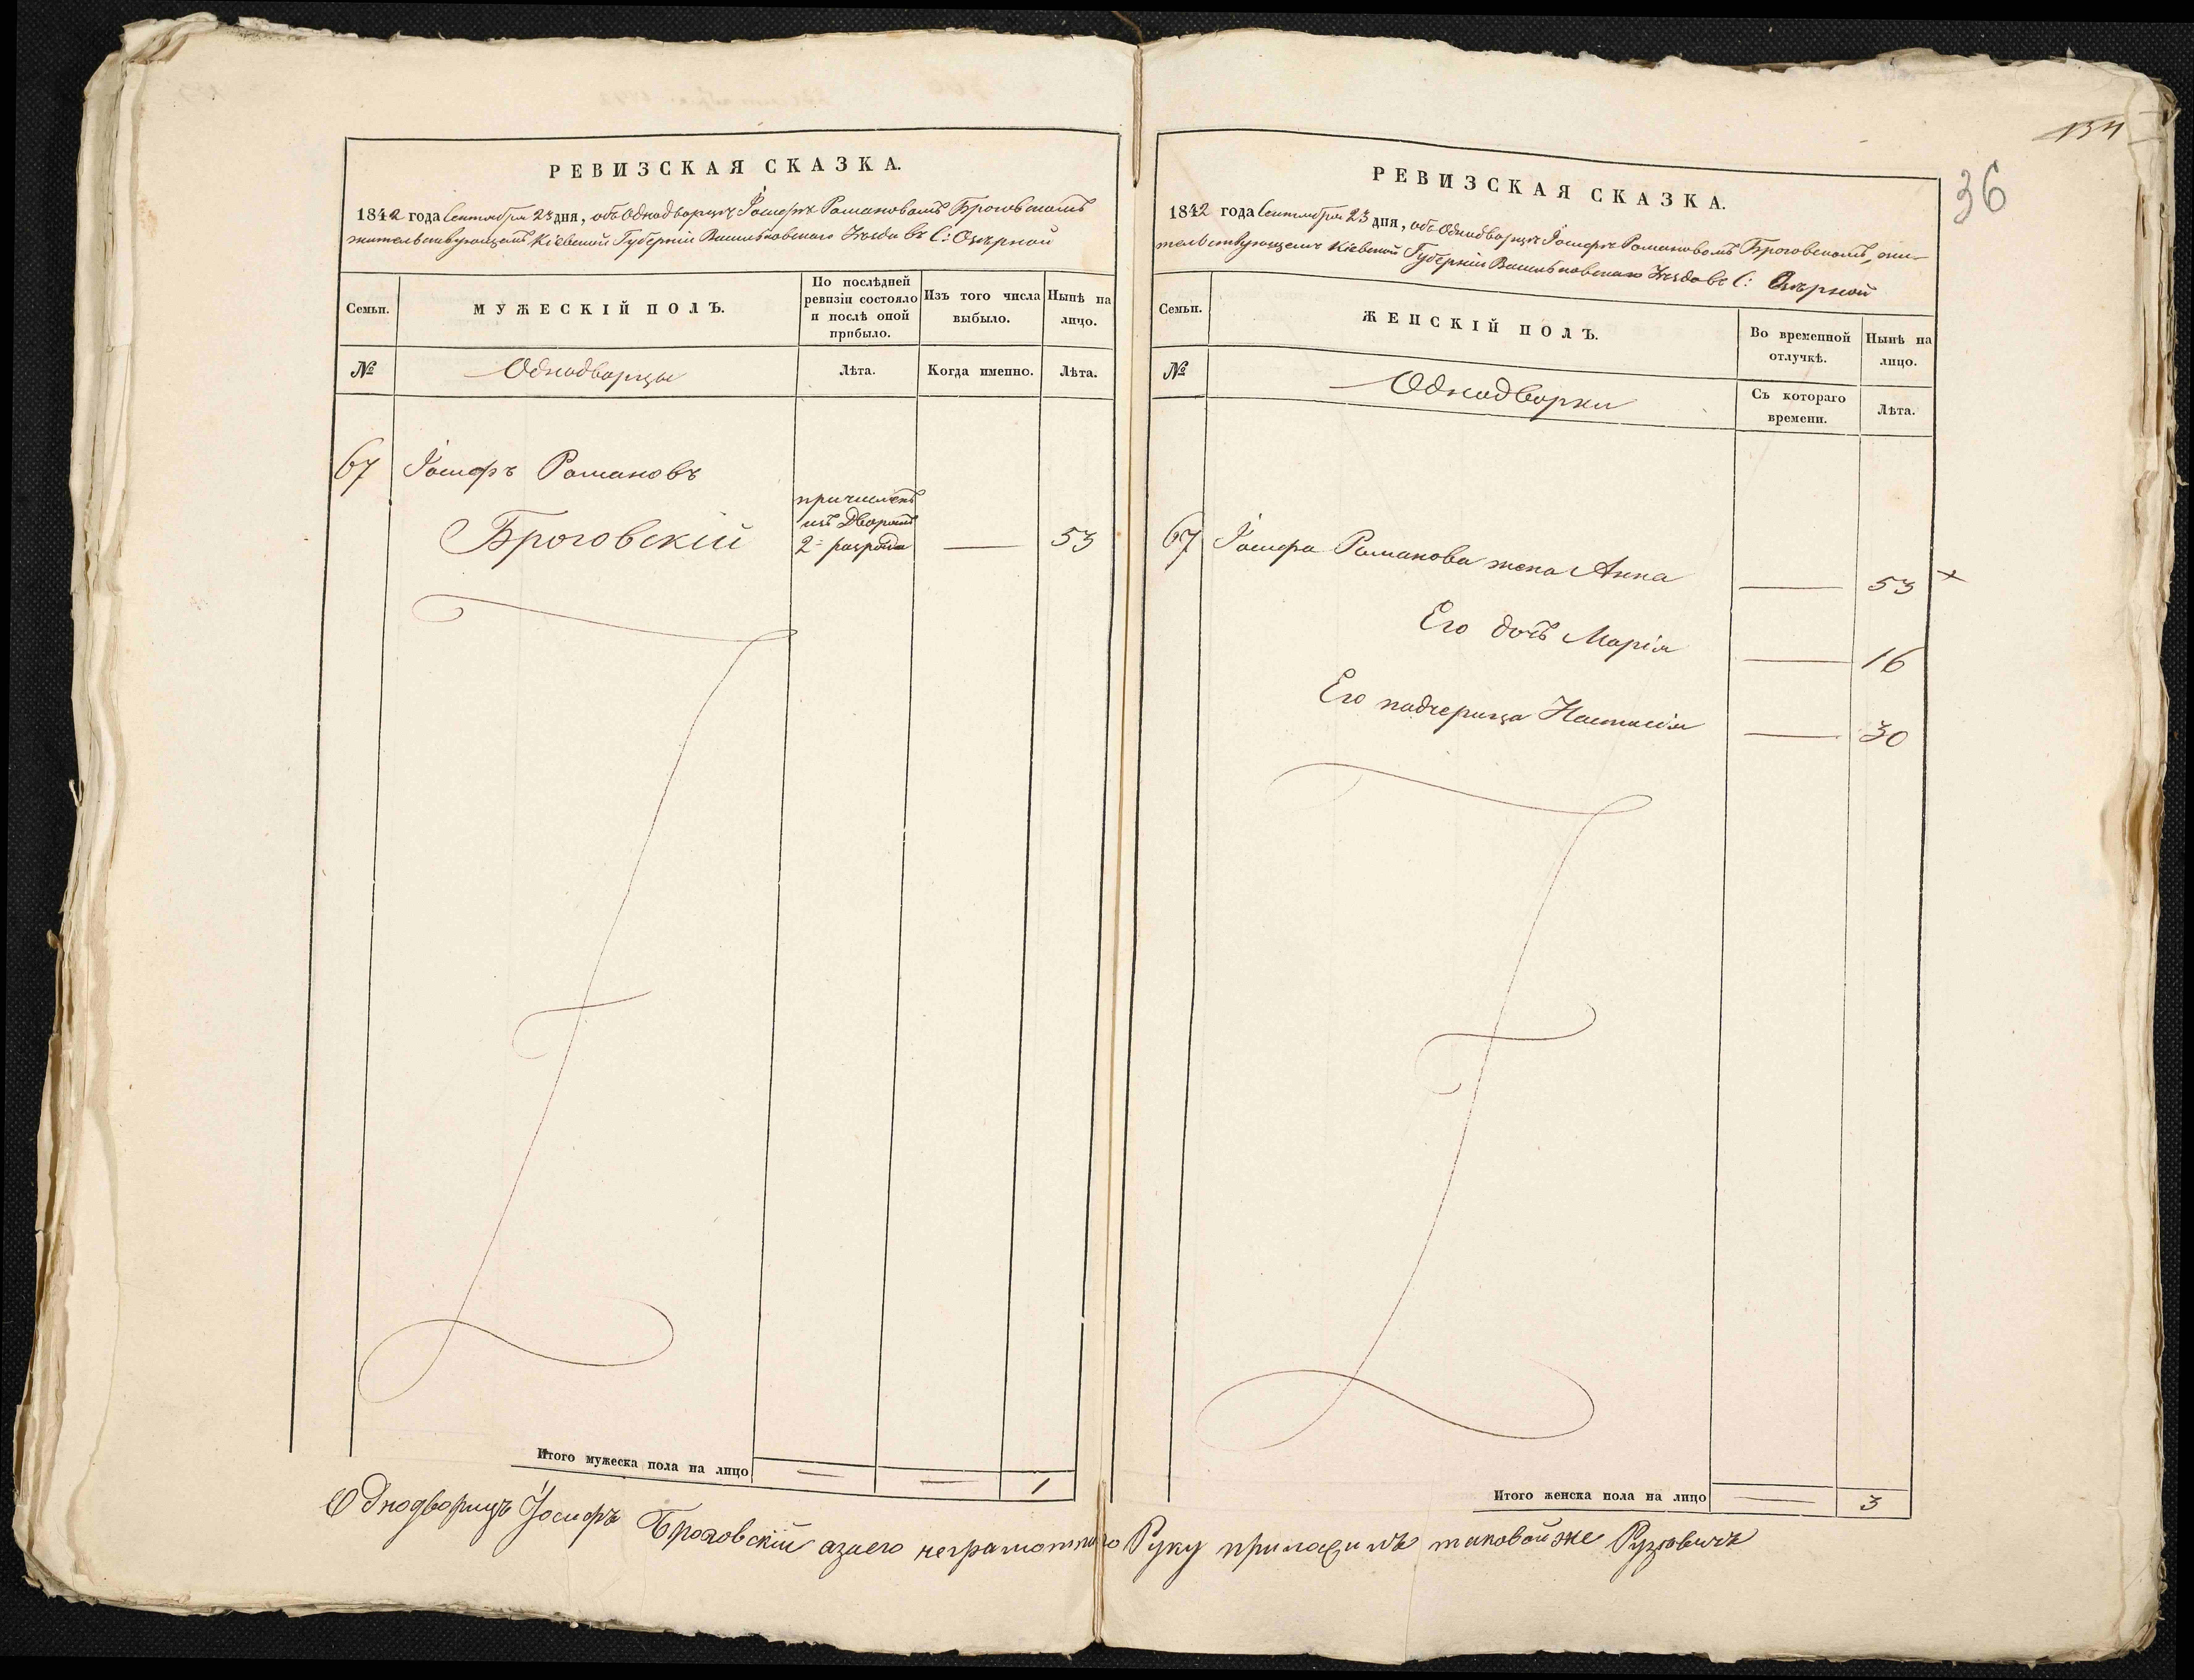 РЕВИЗСКАЯ СКАЗКА.
1842 года Сентября 23 дня, объ Однодворцѣ Іосифѣ Романовомъ Броговскомъ
жительствующемъ Кіевской Губерніи Васильковскаго Уѣзда въ С: Озѣрной
Семьи.
МУЖЕСКІЙ ПОЛЪ.
По послѣдней
ревизіи состояло
и послѣ оной
прибыло.
Изъ того числа
выбыло.
Нынѣ на
лицо.
№
Однодворцы
Лѣта.
Когда именно.
Лѣта.
67 Іосифъ Романовъ
Броговскій
причисленъ
изъ Дворянъ
2 разряда
53
Итого мужеска пола на лицо
1
154
36
РЕВИЗСКАЯ СКАЗКА.
1842 года Сентября 23 дня, объ Однодворцѣ Іосифѣ Романовомъ Броговскомъ, жи-
тельствующемъ Кіевской Губерніи Васильковскаго Уѣзда въ С: Озѣрной
Семьи.
ЖЕНСКІЙ ПОЛЪ.
Во временной
отлучкѣ.
Нынѣ на
лицо.
№
Однодворки
Съ котораго
времени.
Лѣта.
67 Іосифа Романова жена Анна 53 ×
Его дочь Марія 16
Его падчерица Настасія 30
Итого женска пола на лицо
3
Однодворицъ Іосифъ Броговскій азаего неграмотнаго Руку приложилъ таковой же